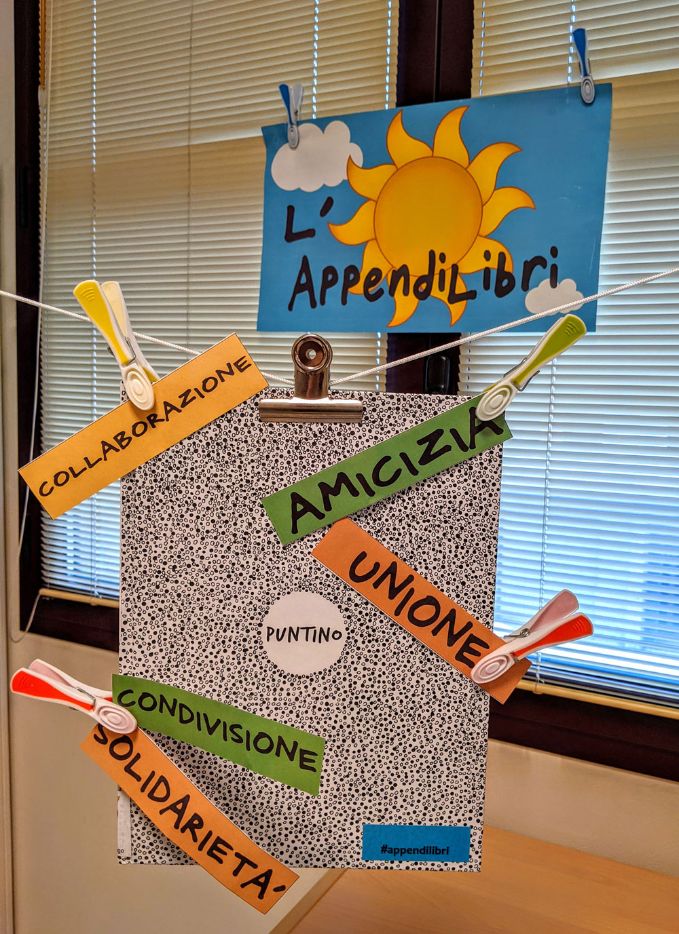 L'
AppendiLibri
COLLABORAZIONE
AMICIZIA
UNIONE
PUNTINO
CONDIVISIONE
SOLIDARIETA'
#appendilibri